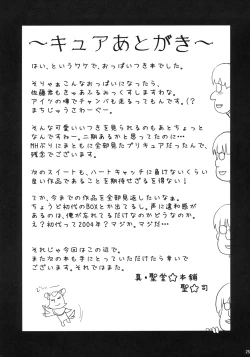 ～キュアあとがき～
はい、というワケで、おっぱいつき本でした。
そりゃぁこんなおっぱいになったら、
佐藤君もきゅあふるみっくすしますわな。
アイケの噂でチャンバも走るってもんです。(?
まちじゅうさわーぐー。
そんな可愛いいつきを見られるのもあとちょっと
なんですねー。二期あるかと思ってたのに…
MHぶりにまともに全部見たプリキュアだったんで、
残念でございます。
次のスイートも、ハートキャッチに負けないくらい
良い作品であることを期待せざるを得ない!
てか、今までの作品を全部見返したいなぁ。
ちょうど初代のBOXとか出てるし。声に違和感
があるのは、俺が忘れてるだけなのかどうなのか。
え?初代って2004年?マジか。マジだ…
それじゃ今回はこの辺で。
また次の本も手にとっていただけたら幸いで
ございます。それではまた。
真・聖堂☆本舗
聖☆司